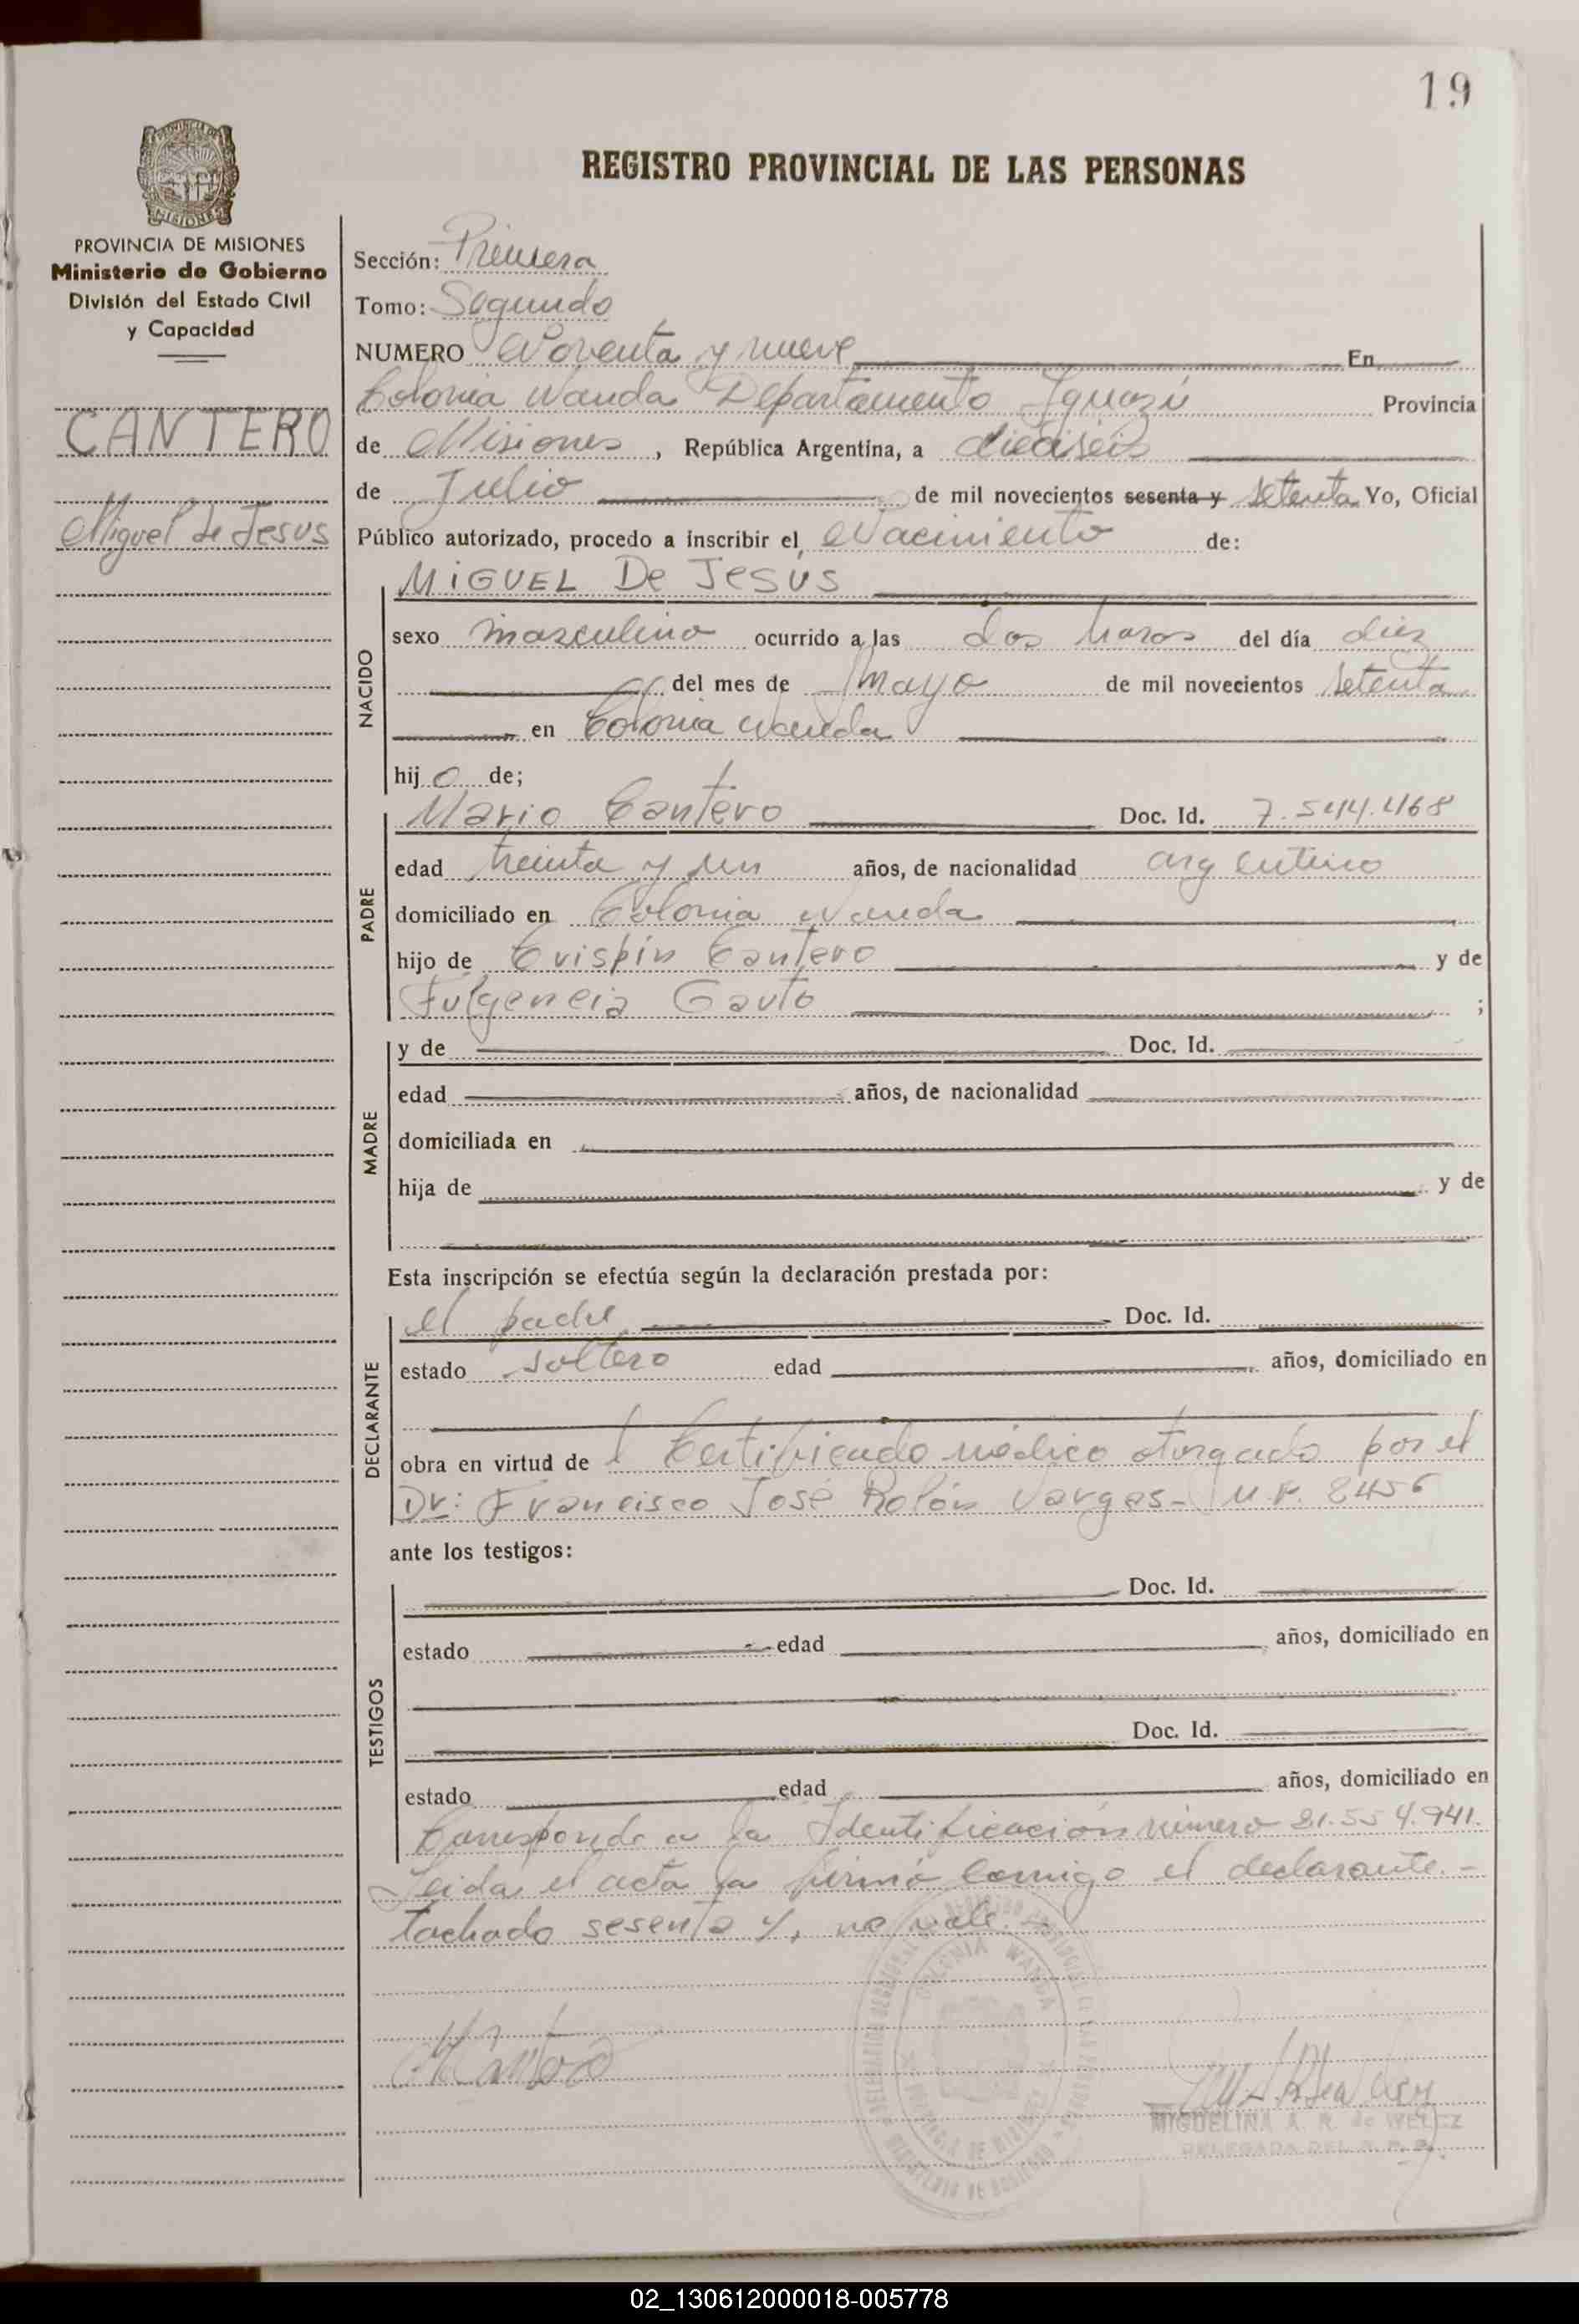 19
REGISTRO PROVINCIAL DE LAS PERSONAS
PROVINCIA DE MISIONES
Ministerio de Gobierno
División del Estado Civil
y Capacidad
CANTERO
Miguel de Jesus
Sección: Primera
Tomo: Segundo
NUMERO Noventa y nueve En
Colonia Wanda Departamento Iguazú Provincia
de Misiones, República Argentina, a dieciseis
de Julio de mil novecientos sesenta y setenta Yo, Oficial
Público autorizado, procedo a inscribir el Nacimiento de:
NACIDO
MIGUEL De JESUS
sexo masculino ocurrido a las dos horas del día diez
del mes de mayo de mil novecientos setenta
en Colonia Wanda
hijo de;
PADRE
Mario Cantero Doc. Id. 7.544.468
edad treinta y un años, de nacionalidad argentino
domiciliado en Colonia Wanda
hijo de Crispín Cantero y de
Fulgencia Gauto ;
MADRE
y de Doc. Id.
edad años, de nacionalidad
domiciliada en
hija de y de
Esta inscripción se efectúa según la declaración prestada por:
DECLARANTE
el padre Doc. Id.
estado soltero edad años, domiciliado en
obra en virtud de Certificado médico otorgado por el
Dr: Francisco José Rolón Vargas- M.P. 8456
ante los testigos:
TESTIGOS
Doc. Id.
estado edad años, domiciliado en
Doc. Id.
estado edad años, domiciliado en
Corresponde a la Identificación número 21.554.941.
Leida el acta la firmó conmigo el declarante.-
tachado sesenta y, no vale.-
COLONIA WANDA
PROVINCIA DE MISIONES
MINISTERIO DE GOBIERNO
MCantero
MIGUELINA A. R. de WELCZ
DELEGADA DEL R. P. P.
02_130612000018-005778